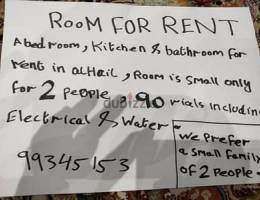 RooM FOR RENT
A bedroom, Kitchen & bathroom for
rent in alHail, Room is small only
for 2 people, 90 rials including
Electrical & Water
99345153
we Prefer
a small family
of 2 People.
dubizzle